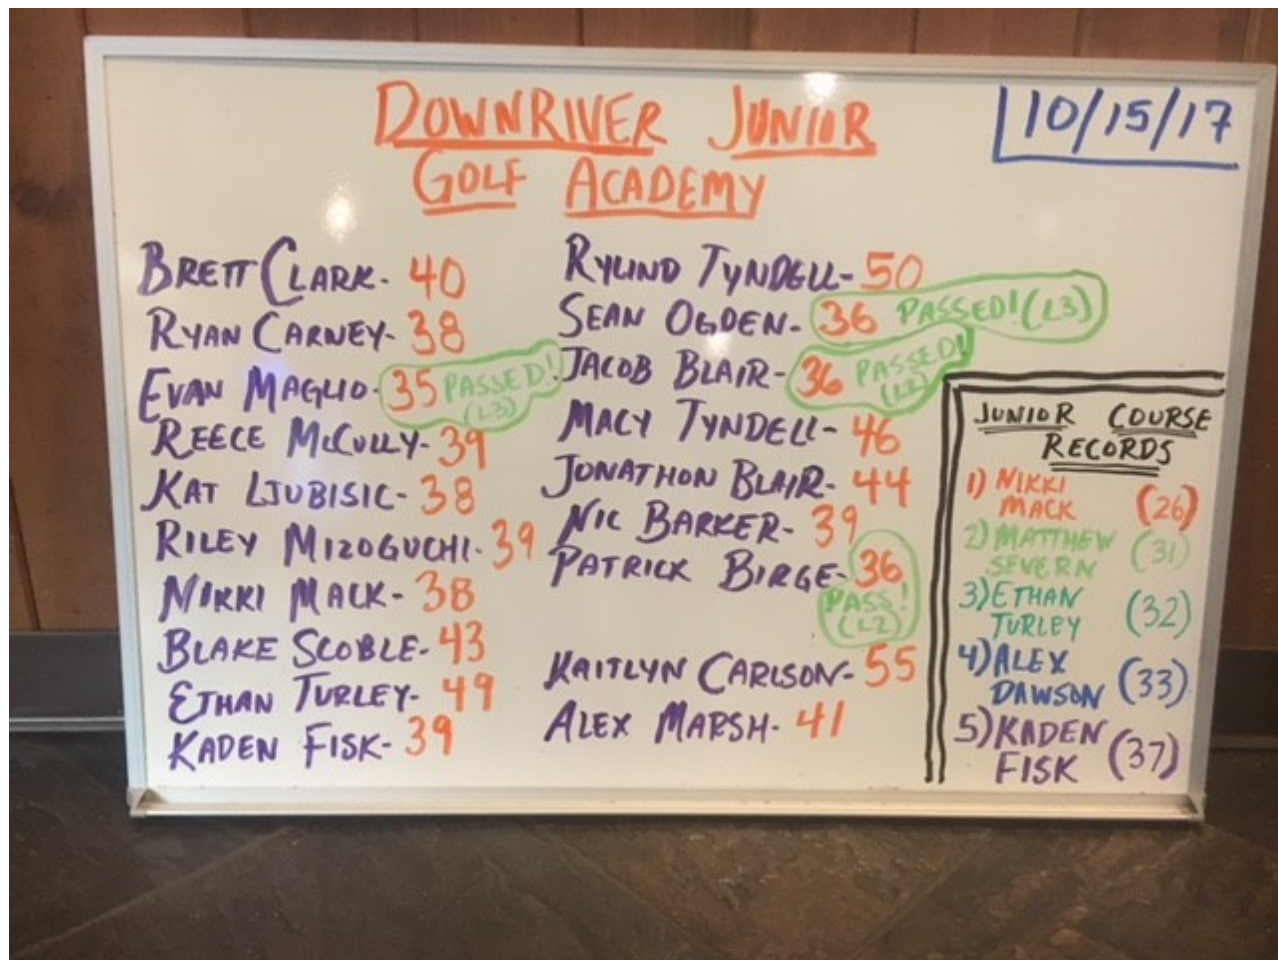 DOWNRIVER JUNIOR
GOLF ACADEMY
10/15/17
BRETT CLARK- 40
RYAN CARNEY- 38
EVAN MAGLIO- 35 PASSED!
(L3)
REECE MCCULLY- 39
KAT LJUBISIC- 38
RILEY MIZOGUCHI- 39
NIKKI MACK- 38
BLAKE SCOBLE- 43
ETHAN TURLEY- 49
KADEN FISK- 39
RYLIND TYNDELL- 50
SEAN OGDEN- 36 PASSED! (L3)
JACOB BLAIR- 36 PASSED!
(L2)
MACY TYNDELL- 46
JONATHON BLAIR- 44
NIC BARKER- 39
PATRICK BIRGE- 36
PASS!
(L2)
KAITLYN CARLSON- 55
ALEX MARSH- 41
JUNIOR COURSE
RECORDS
1) NIKKI
MACK (26)
2) MATTHEW
SEVERN (31)
3) ETHAN
TURLEY (32)
4) ALEX
DAWSON (33)
5) KADEN
FISK (37)